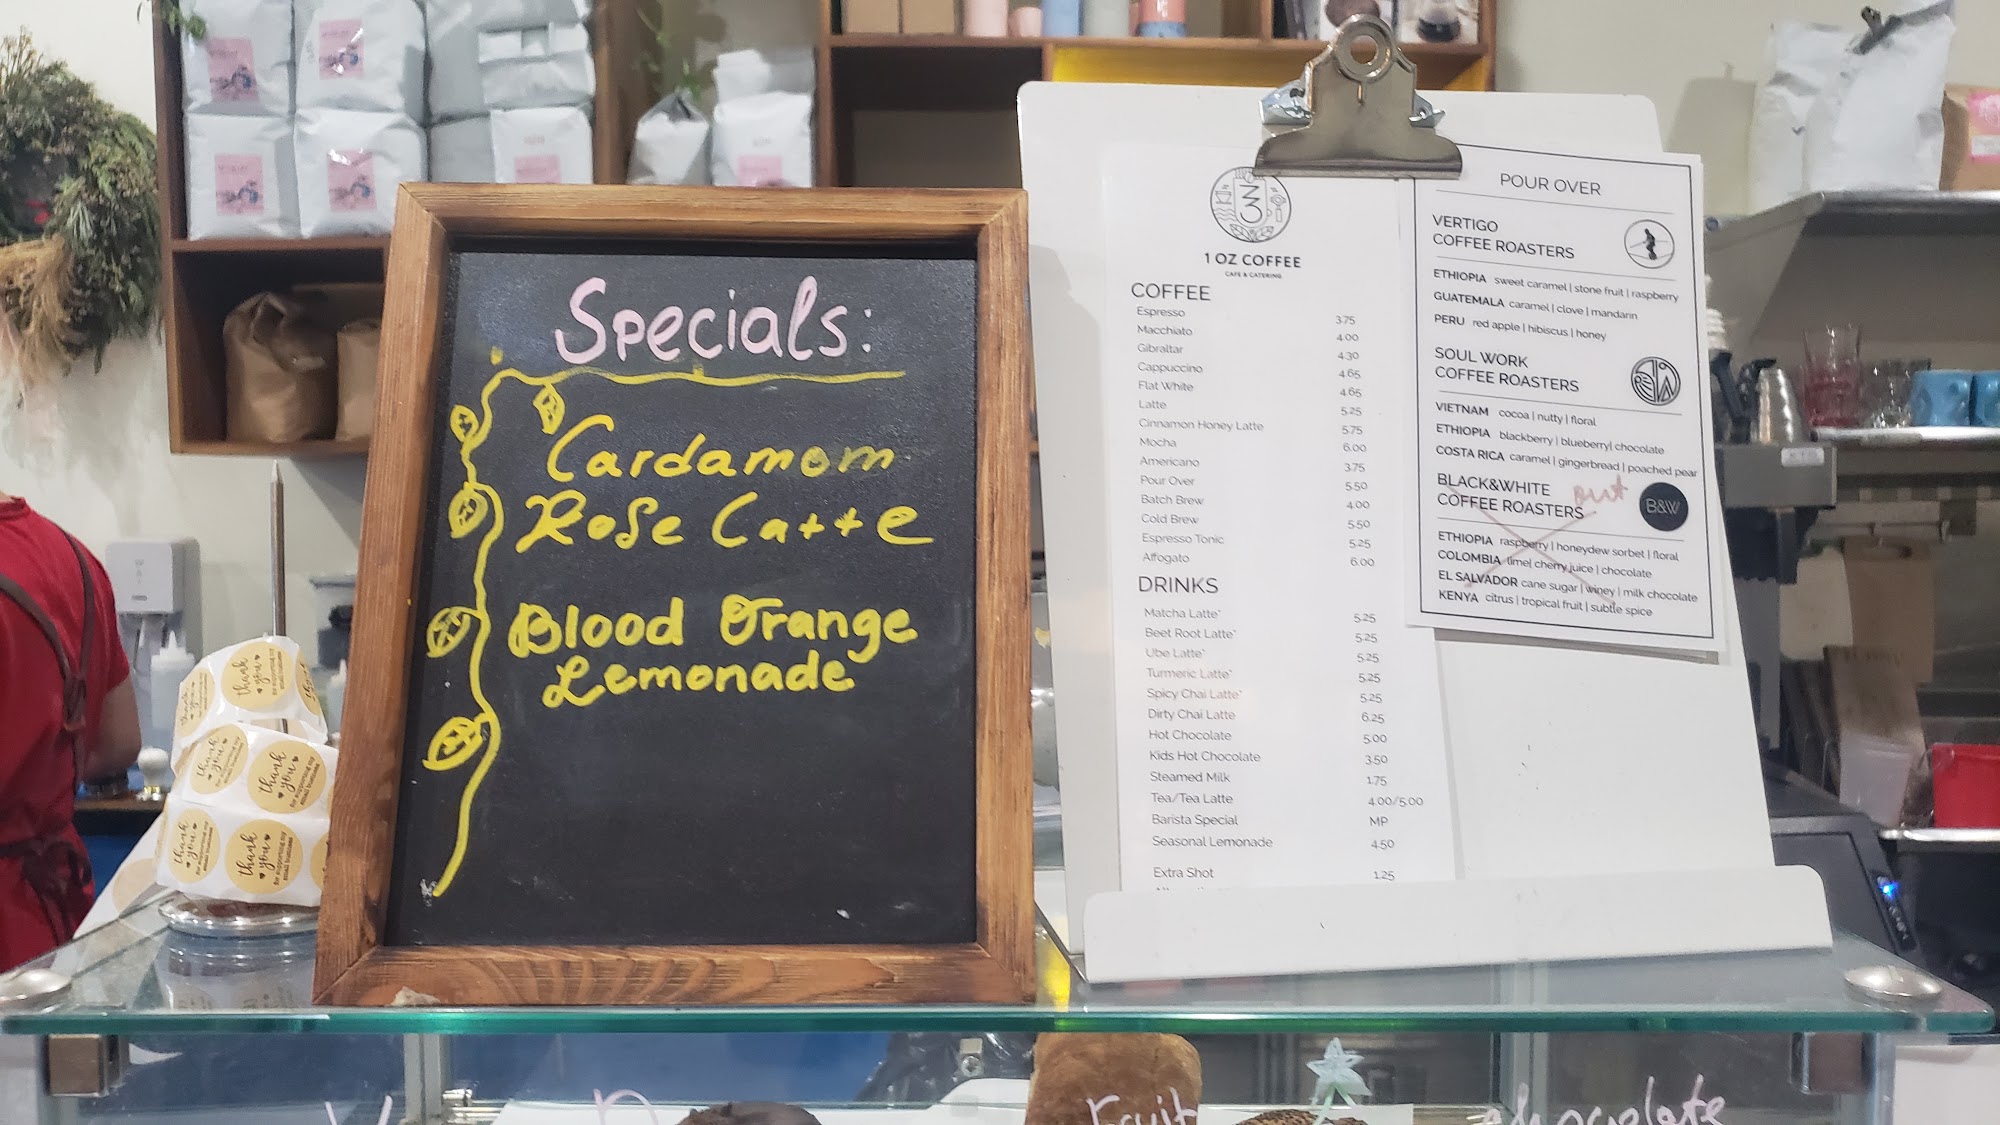 Specials:
Cardamom
Rose Latte
Blood Orange
Lemonade
1 OZ COFFEE
CAFE & CATERING
COFFEE
Espresso 3.75
Macchiato 4.00
Gibraltar 4.30
Cappuccino 4.65
Flat White 4.65
Latte 5.25
Cinnamon Honey Latte 5.75
Mocha 6.00
Americano 3.75
Pour Over 5.50
Batch Brew 4.00
Cold Brew 5.50
Espresso Tonic 5.25
Affogato 6.00
DRINKS
Matcha Latte* 5.25
Beet Root Latte* 5.25
Ube Latte* 5.25
Turmeric Latte* 5.25
Spicy Chai Latte* 5.25
Dirty Chai Latte 6.25
Hot Chocolate 5.00
Kids Hot Chocolate 3.50
Steamed Milk 1.75
Tea/Tea Latte 4.00/5.00
Barista Special MP
Seasonal Lemonade 4.50
Extra Shot 1.25
POUR OVER
VERTIGO
COFFEE ROASTERS
ETHIOPIA sweet caramel | stone fruit | raspberry
GUATEMALA caramel | clove | mandarin
PERU red apple | hibiscus | honey
SOUL WORK
COFFEE ROASTERS
VIETNAM cocoa | nutty | floral
ETHIOPIA blackberry | blueberry| chocolate
COSTA RICA caramel | gingerbread | poached pear
BLACK&WHITE out
COFFEE ROASTERS B&W
ETHIOPIA raspberry | honeydew sorbet | floral
COLOMBIA lime| cherry juice | chocolate
EL SALVADOR cane sugar | winey | milk chocolate
KENYA citrus | tropical fruit | subtle spice
thank
you
for supporting my
small business
thank
you
for supporting my
small business
thank
you
for supporting my
small business
thank
you
for supporting my
small business
thank
you
for supporting my
small business
Fruit
chocolate